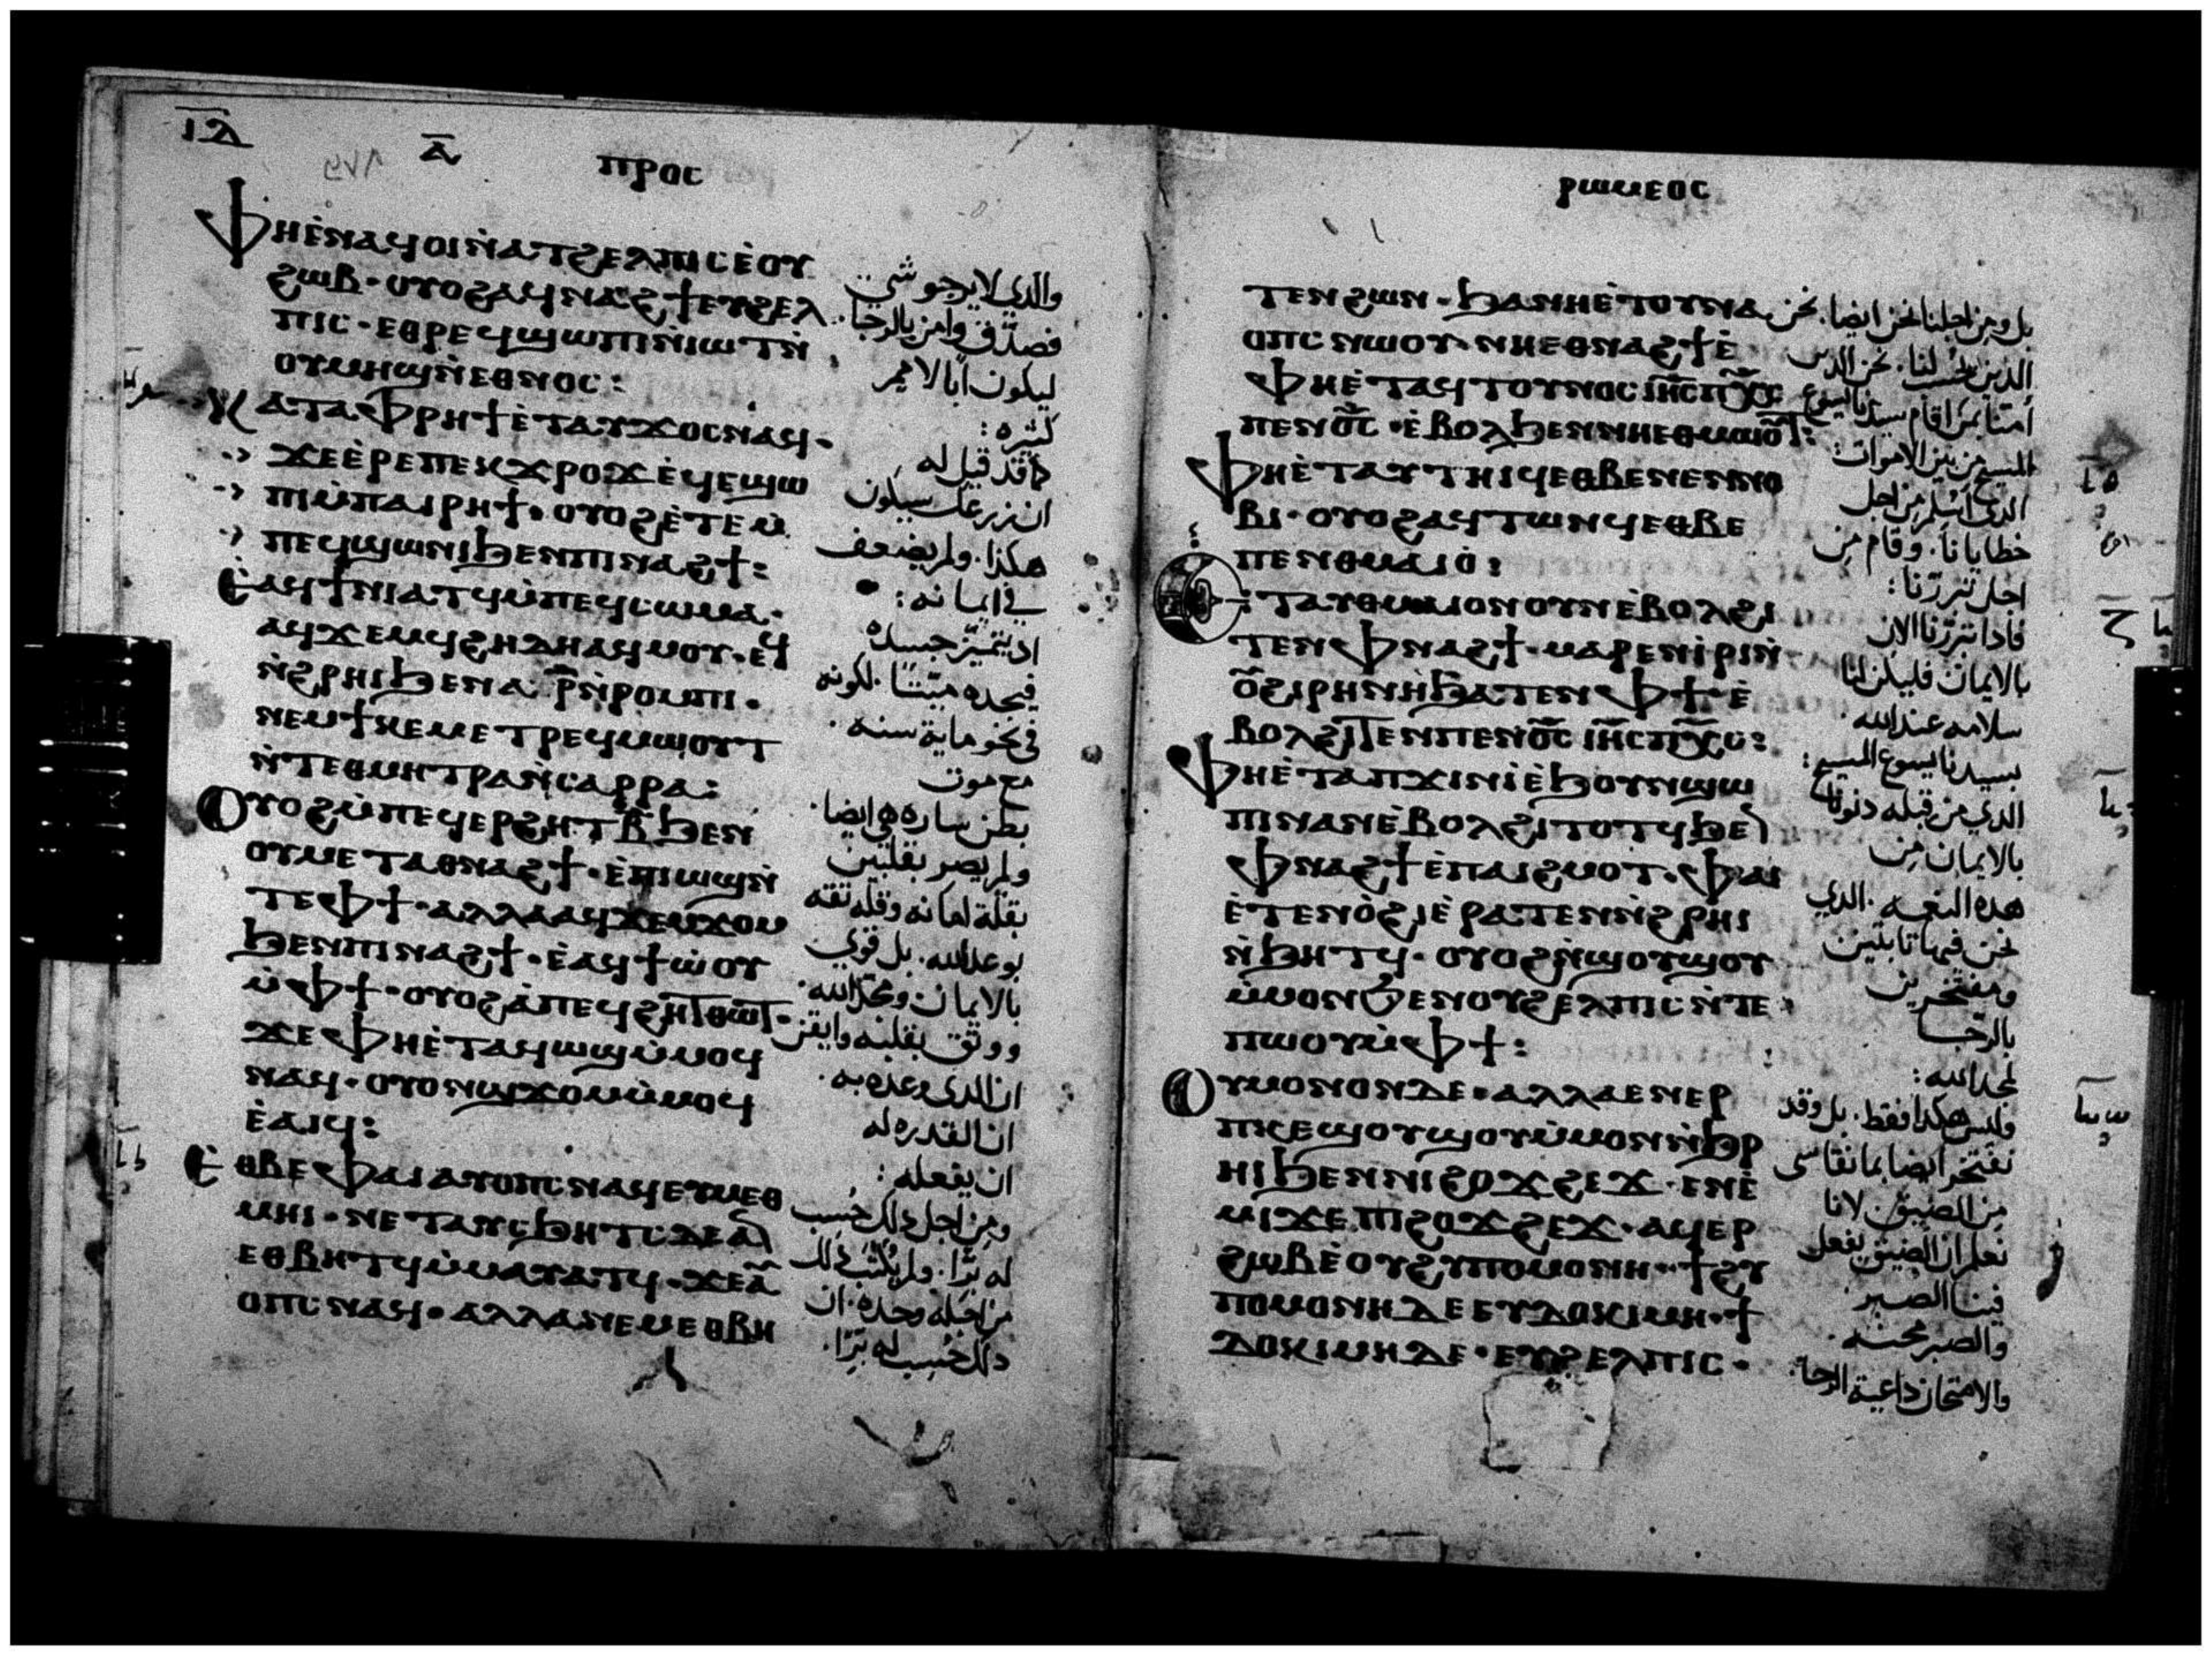 ⲓⲇ
ⲁ̅
ⲡⲣⲟⲥ
ⲫⲏⲉ̀ⲛⲁϥⲟⲓⲛ̀ⲁⲧϩⲉⲗⲡⲓⲥⲉ̀ⲟⲩ
ϩⲱⲃ · ⲟⲩⲟϩⲁϥⲛⲁϩϯⲉⲩϩⲉⲗ
ⲡⲓⲥ · ⲉⲑⲣⲉϥϣⲱⲡⲓⲛ̀ⲓⲱⲧⲛ̀
ⲟⲩⲙⲏϣⲛ̀ⲉⲑⲛⲟⲥ :
ⲕⲁⲧⲁⲫⲣⲏϯⲉ̀ⲧⲁⲩϫⲟⲥⲛⲁϥ ·
ϫⲉⲉ̀ⲣⲉⲡⲉⲕϫⲣⲟϫⲉ̀ϥⲉϣⲱ
ⲡⲓⲙ̀ⲡⲁⲓⲣⲏϯ · ⲟⲩⲟϩⲉ̀ⲧⲉⲙ̀
ⲡⲉϥϣⲱⲛⲓϧⲉⲛⲡⲓⲛⲁϩϯ :
ⲉ̀ⲁϥϯⲛⲓⲁⲧϥⲙ̀ⲡⲉϥⲥⲱⲙⲁ ·
ⲁϥϫⲉⲙϥϩⲏⲇⲏⲁϥⲙⲟⲩ · ⲉϥ
ⲛ̀ϩⲣⲏⲓϧⲉⲛⲁ ⲣ̅ⲛ̀ⲣⲟⲙⲡⲓ ·
ⲛⲉⲙϯⲕⲉⲙⲉⲧⲣⲉϥⲙⲱⲟⲩⲧ
ⲛ̀ⲧⲉⲑⲙⲏⲧⲣⲁⲛ̀ⲥⲁⲣⲣⲁ :
ⲟⲩⲟϩⲙ̀ⲡⲉϥⲉⲣϩⲏⲧⲃ̅ϧⲉⲛ
ⲟⲩⲙⲉⲧⲁⲑⲛⲁϩϯ · ⲉ̀ⲡⲓⲱϣⲛ̀
ⲧⲉⲫϯ · ⲁⲗⲗⲁⲁϥϫⲉⲙϫⲟⲙ
ϧⲉⲛⲡⲓⲛⲁϩϯ · ⲉ̀ⲁϥϯⲱ̀ⲟⲩ
ⲙ̀ⲫϯ · ⲟⲩⲟϩⲁ̀ⲡⲉϥϩⲏⲧⲑⲱⲧ ·
ϫⲉⲫⲏⲉ̀ⲧⲁϥⲱϣⲙ̀ⲙⲟϥ
ⲛⲁϥ · ⲟⲩⲟⲛϣϫⲟⲙⲙ̀ⲙⲟϥ
ⲉ̀ⲁⲓϥ :
ⲉ̀ⲑⲃⲉⲫⲁⲓⲁⲩⲟⲡⲥⲛⲁϥⲉⲩⲙⲉⲑ
ⲙⲏⲓ · ⲛⲉⲧⲁⲩⲥϧⲏⲧⲥⲇⲉⲁⲛ
ⲉⲑⲃⲏⲧϥⲙ̀ⲙⲁⲩⲁⲧϥ · ϫⲉⲁⲩ
ⲟⲡⲥⲛⲁϥ · ⲁⲗⲗⲁⲛⲉⲙⲉⲑⲃⲏ
والذي لا يرجو شي
فصدّق وامن بالرجا ·
ليكون أبا لامم
كثيره :
كما قد قيل له
ان زرعك سيكون
هكذا · ولم يضعف
في ايمانه :
اذ يتميّز جسده
فيجده ميّتًا · لكونه
في نحو ماية سنه ·
مع موت
بطن ساره هي ايضا ·
ولم يصر بقلبين
بقلة امانه وقله ثقه
بوعد الله · بل قوي
بالايمان ومجّد الله ·
ووثق بقلبه وايقن
ان الذي وعده به ·
ان القدره له
ان يفعله :
ومن اجل ذلك حُسِب
له برًّا · ولم يُكتَب ذلك
من اجله وحده · ان
ذلك حُسِب له برًّا ·
ⲣⲱⲙⲉⲟⲥ
ⲧⲉⲛϩⲱⲛ · ϧⲁⲛⲏⲉ̀ⲧⲟⲩⲛⲁ
ⲟⲡⲥⲛⲱⲟⲩ · ⲛⲏⲉⲑⲛⲁϩϯⲉ̀
ⲫⲏⲉ̀ⲧⲁϥⲧⲟⲩⲛⲟⲥⲓⲏ̅ⲥⲡⲭ̅ⲥ
ⲡⲉⲛⲟ̅ⲥ̅ · ⲉ̀ⲃⲟⲗϧⲉⲛⲛⲏⲉⲑⲙⲱⲟⲩⲧ :
ⲫⲏⲉ̀ⲧⲁⲩⲧⲏⲓϥⲉⲑⲃⲉⲛⲉⲛⲛⲟ
ⲃⲓ · ⲟⲩⲟϩⲁϥⲧⲱⲛϥⲉⲑⲃⲉ
ⲡⲉⲛⲑⲙⲁⲓⲟ̀ :
ⲉ̀ⲧⲁⲩⲑⲙⲁⲓⲟⲛⲟⲩⲛⲉ̀ⲃⲟⲗϩⲓ
ⲧⲉⲛⲫⲛⲁϩϯ · ⲙⲁⲣⲉⲛⲓ̀ⲣⲓⲛ̀
ⲟⲩϩⲓⲣⲏⲛⲏϧⲁⲧⲉⲛⲫϯ · ⲉ̀
ⲃⲟⲗϩⲓⲧⲉⲛⲡⲉⲛⲟ̅ⲥ̅ ⲓⲏ̅ⲥⲡⲭ̅ⲥ :
ⲫⲏⲉ̀ⲧⲁⲡϫⲓⲛⲓ̀ⲉ̀ϧⲟⲩⲛϣⲱ
ⲡⲓⲛⲁⲛⲉ̀ⲃⲟⲗϩⲓⲧⲟⲧϥϧⲉⲛ
ⲫⲛⲁϩϯⲉ̀ⲡⲁⲓϩⲙⲟⲧ · ⲫⲁⲓ
ⲉ̀ⲧⲉⲛⲟ̀ϩⲓⲉ̀ⲣⲁⲧⲉⲛⲛ̀ϩⲣⲏⲓ
ⲛ̀ϧⲏⲧϥ · ⲟⲩⲟϩⲛ̀ϣⲟⲩϣⲟⲩ
ⲙ̀ⲙⲟⲛϧⲉⲛⲟⲩϩⲉⲗⲡⲓⲥⲛ̀ⲧⲉ
ⲡⲱⲟⲩⲙ̀ⲫϯ :
ⲟⲩⲙⲟⲛⲟⲛⲇⲉ · ⲁⲗⲗⲁⲉⲛⲉⲣ
ⲡⲕⲉϣⲟⲩϣⲟⲩⲙ̀ⲙⲟⲛⲛ̀ϧⲣ
ⲏⲓϧⲉⲛⲛⲓϩⲟϫϩⲉϫ · ⲉⲛⲉ̀
ⲙⲓϫⲉⲡⲓϩⲟϫϩⲉϫ · ⲁϥⲉⲣ
ϩⲱⲃⲉ̀ⲟⲩϩⲩⲡⲟⲙⲟⲛⲏ · ϯϩⲩ
ⲡⲟⲙⲟⲛⲏⲇⲉⲉⲩⲇⲟⲕⲓⲙⲏ · ϯ
ⲇⲟⲕⲓⲙⲏⲇⲉ · ⲉⲩϩⲉⲗⲡⲓⲥ ·
بل ومن اجلنا نحن ايضا · نحن
الذين يُحسب لنا · نحن الذين
أمنّا بمن اقام سيدنا يسوع
المسيح من بين الاموات :
الذي أسلم من اجل
خطايانا · وقام من
اجل تبرّرنا :
فاذا تبرّرنا الان
بالايمان فليكن لنا
سلامه عند الله ·
بسيدنا يسوع المسيح :
الذي من قبله دنونا
بالايمان من
هذه النعمه · الذي
نحن فيها ثابتين
ومفتخرين
بالرّجا
لمجد الله :
وليس هكذا فقط · بل وقد
نفتخر ايضا بما نقاسى
من الضيق · لانا
نعلم ان الضيق يفعل
فينا الصبر ·
والصبر محنه ·
والامتحان داعية الرجا ·